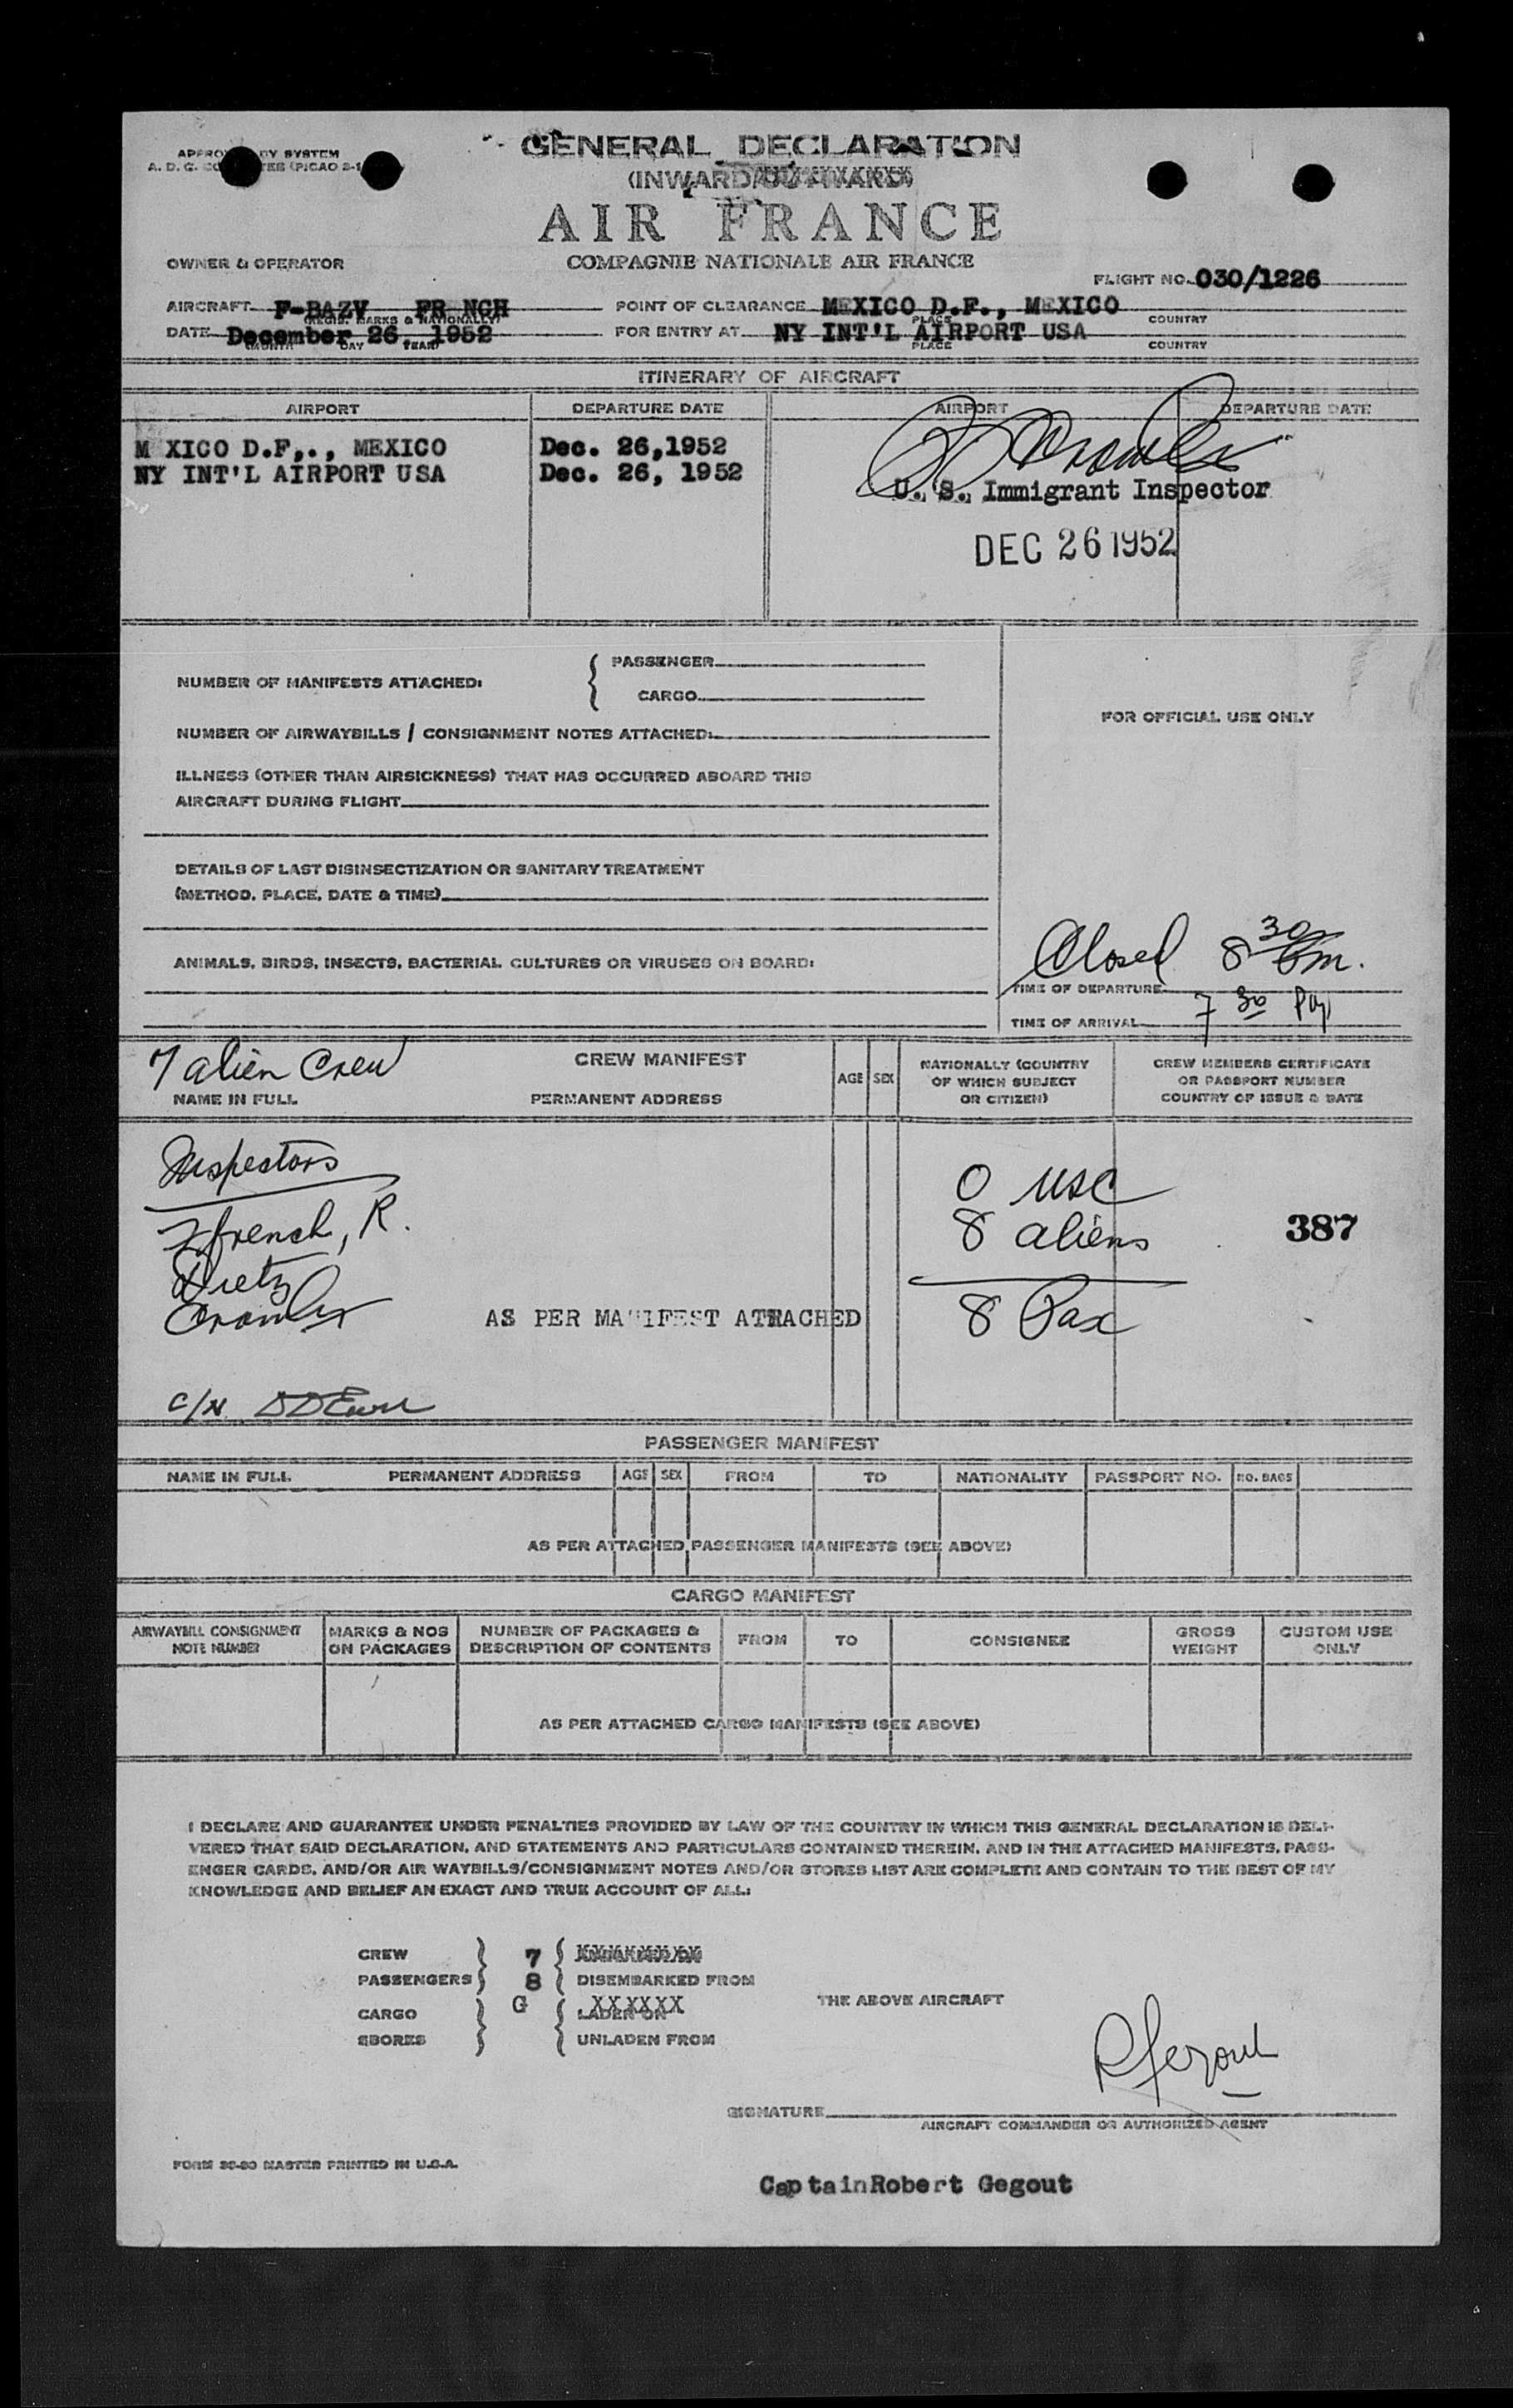 GENERAL DECLARATION
APPRO BY SYSTEM
A. D. C. CO TEE (PICAO 2-1
(INWARD/OUTWARD)
AIR FRANCE
OWNER & OPERATOR
COMPAGNIE NATIONALE AIR FRANCE
FLIGHT NO. 030/1226
AIRCRAFT F-BAZV FR NCH POINT OF CLEARANCE MEXICO D.F., MEXICO
(REGIS. MARKS & NATIONALLY) PLACE COUNTRY
DATE December 26, 1952 FOR ENTRY AT NY INT'L AIRPORT USA
(MONTH DAY YEAR) PLACE COUNTRY
ITINERARY OF AIRCRAFT
AIRPORT DEPARTURE DATE AIRPORT DEPARTURE DATE
M XICO D.F,., MEXICO Dec. 26,1952
NY INT'L AIRPORT USA Dec. 26, 1952
U. S. Immigrant Inspector
DEC 26 1952
NUMBER OF MANIFESTS ATTACHED: { PASSENGER
CARGO
FOR OFFICIAL USE ONLY
NUMBER OF AIRWAYBILLS / CONSIGNMENT NOTES ATTACHED:
ILLNESS (OTHER THAN AIRSICKNESS) THAT HAS OCCURRED ABOARD THIS
AIRCRAFT DURING FLIGHT
DETAILS OF LAST DISINSECTIZATION OR SANITARY TREATMENT
(METHOD, PLACE, DATE & TIME)
ANIMALS, BIRDS, INSECTS, BACTERIAL CULTURES OR VIRUSES ON BOARD:
Closed 8 30 Pm.
TIME OF DEPARTURE
TIME OF ARRIVAL 7 30 Pm
7 alien Crew
CREW MANIFEST
NAME IN FULL PERMANENT ADDRESS AGE SEX
NATIONALLY (COUNTRY
OF WHICH SUBJECT
OR CITIZEN)
CREW MEMBERS CERTIFICATE
OR PASSPORT NUMBER
COUNTRY OF ISSUE & DATE
Inspectors
French, R.
Dietz
0 USC
8 aliens
8 Pax
387
AS PER MANIFEST ATTACHED
C/N
PASSENGER MANIFEST
NAME IN FULL PERMANENT ADDRESS AGE SEX FROM TO NATIONALITY PASSPORT NO. NO. BAGS
AS PER ATTACHED PASSENGER MANIFESTS (SEE ABOVE)
CARGO MANIFEST
AIRWAYBILL CONSIGNMENT
NOTE NUMBER
MARKS & NOS
ON PACKAGES
NUMBER OF PACKAGES &
DESCRIPTION OF CONTENTS
FROM TO CONSIGNEE
GROSS
WEIGHT
CUSTOM USE
ONLY
AS PER ATTACHED CARGO MANIFESTS (SEE ABOVE)
I DECLARE AND GUARANTEE UNDER PENALTIES PROVIDED BY LAW OF THE COUNTRY IN WHICH THIS GENERAL DECLARATION IS DELI-
VERED THAT SAID DECLARATION, AND STATEMENTS AND PARTICULARS CONTAINED THEREIN, AND IN THE ATTACHED MANIFESTS, PASS-
ENGER CARDS, AND/OR AIR WAYBILLS/CONSIGNMENT NOTES AND/OR STORES LIST ARE COMPLETE AND CONTAIN TO THE BEST OF MY
KNOWLEDGE AND BELIEF AN EXACT AND TRUE ACCOUNT OF ALL:
CREW } 7 { XXXXXXXX
PASSENGERS } 8 { DISEMBARKED FROM
THE ABOVE AIRCRAFT
CARGO } G { LADEN ON XXXXXX
SBORES } { UNLADEN FROM
RGegout
SIGNATURE
AIRCRAFT COMMANDER OR AUTHORIZED AGENT
FORM 30-50 MASTER PRINTED IN U.S.A.
CaptainRobert Gegout